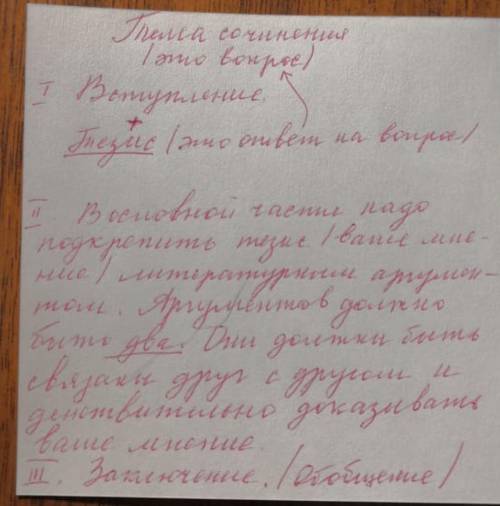 Тема сочинения
(это вопрос)
I Вступление.
+
Тезис (это ответ на вопрос)
II. В основной части надо
подкрепить тезис (ваше мне-
ние) литературным аргумен-
том. Аргументов должно
быть два. Они должны быть
связаны друг с другом и
действительно доказывать
ваше мнение.
III. Заключение. (Обобщение)